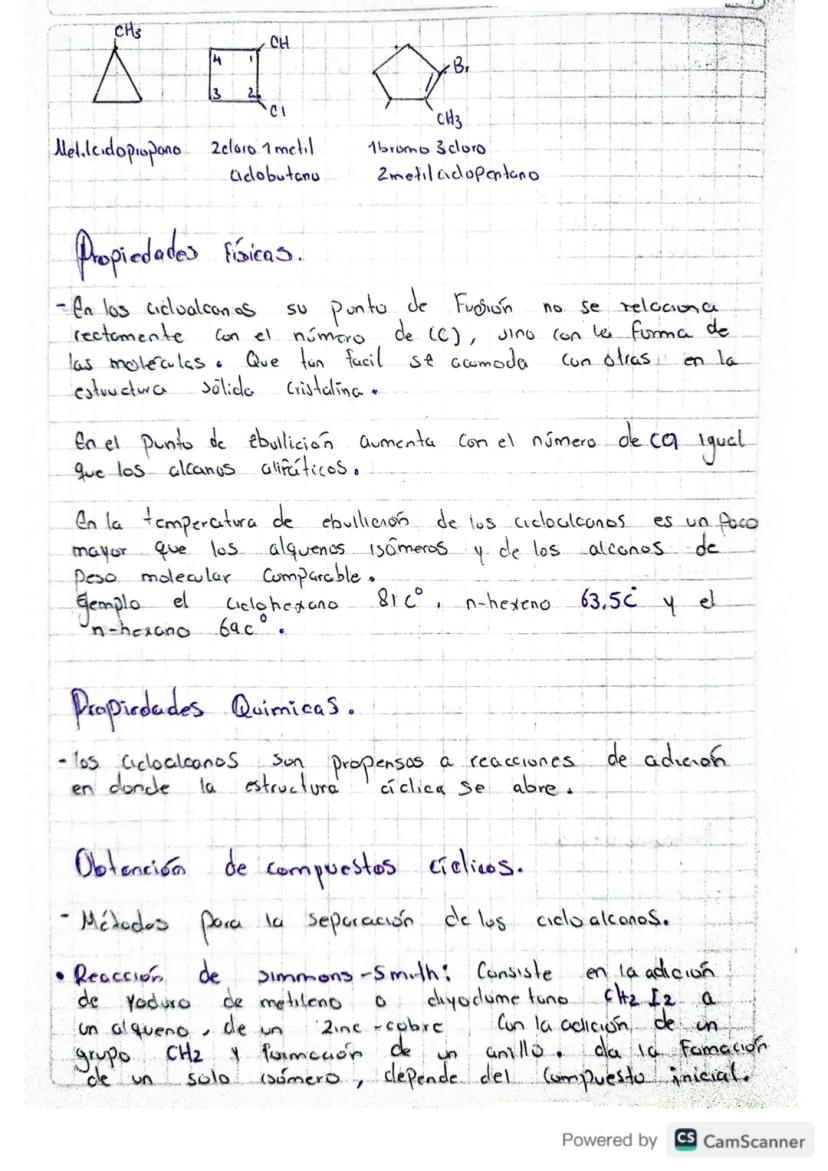 CH3
CH
4 1
3 2
Cl
Br
CH3
Metilciclopropano 2cloro 1metil 1bromo 3cloro
ciclobutano 2metilciclopentano
Propiedades Físicas.
- En los cicloalcanos su punto de Fusión no se relaciona
rectamente con el número de (C), sino con la forma de
las moléculas. Que tan facil se acomoda con otras en la
estructura sólida cristalina.
En el punto de ebullición aumenta con el número de ca igual
que los alcanos alifáticos.
En la temperatura de ebullición de los cicloalcanos es un poco
mayor que los alquenos isómeros y de los alcanos de
peso molecular comparable.
Ejemplo el ciclohexano 81c°, n-hexeno 63,5c y el
n-hexano 69c°.
Propiedades Quimicas.
- los cicloalcanos son propensos a reacciones de adición
en donde la estructura cíclica se abre.
Obtención de compuestos cíclicos.
- Métodos para la separación de los cicloalcanos.
• Reacción de simmons-Smith: Consiste en la adición
de yoduro de metileno o diyodometano CH2 I2 a
un alqueno, de un zinc-cobre con la adición de un
grupo CH2 y formación de un anillo. da la Formación
de un solo isómero, depende del compuesto inicial.
Powered by CS CamScanner